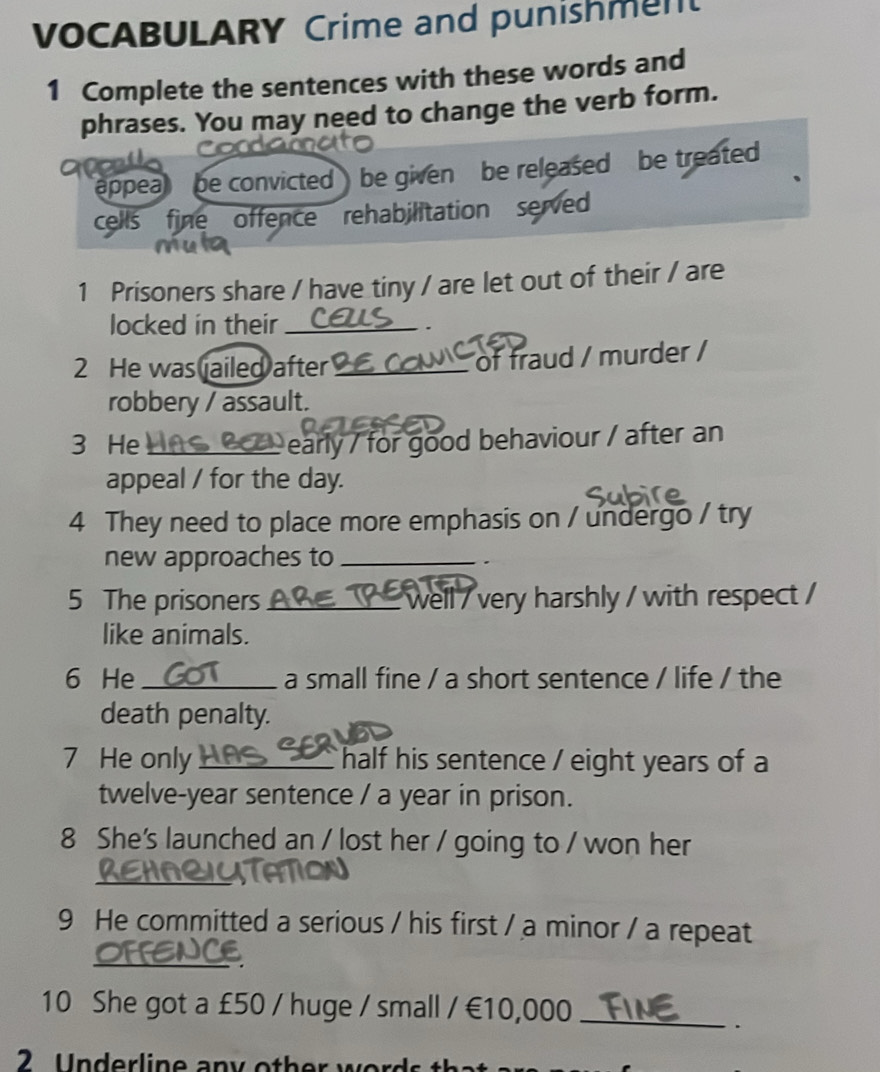 VOCABULARY Crime and punishment
1 Complete the sentences with these words and
phrases. You may need to change the verb form.
appello condamato
appeal be convicted be given be released be treated
cells fine offence rehabilitation served
muta
1 Prisoners share / have tiny / are let out of their / are
locked in their CELLS .
2 He was jailed after BE CONVICTED of fraud / murder /
robbery / assault.
3 He HAS BEEN RELEASED early / for good behaviour / after an
appeal / for the day.
subire
4 They need to place more emphasis on / undergo / try
new approaches to ________ .
5 The prisoners ARE TREATED well / very harshly / with respect /
like animals.
6 He GOT a small fine / a short sentence / life / the
death penalty.
7 He only HAS SERVED half his sentence / eight years of a
twelve-year sentence / a year in prison.
8 She's launched an / lost her / going to / won her
REHABILITATION
9 He committed a serious / his first / a minor / a repeat
OFFENCE.
10 She got a £50 / huge / small / €10,000 FINE .
2 Underline any other words that